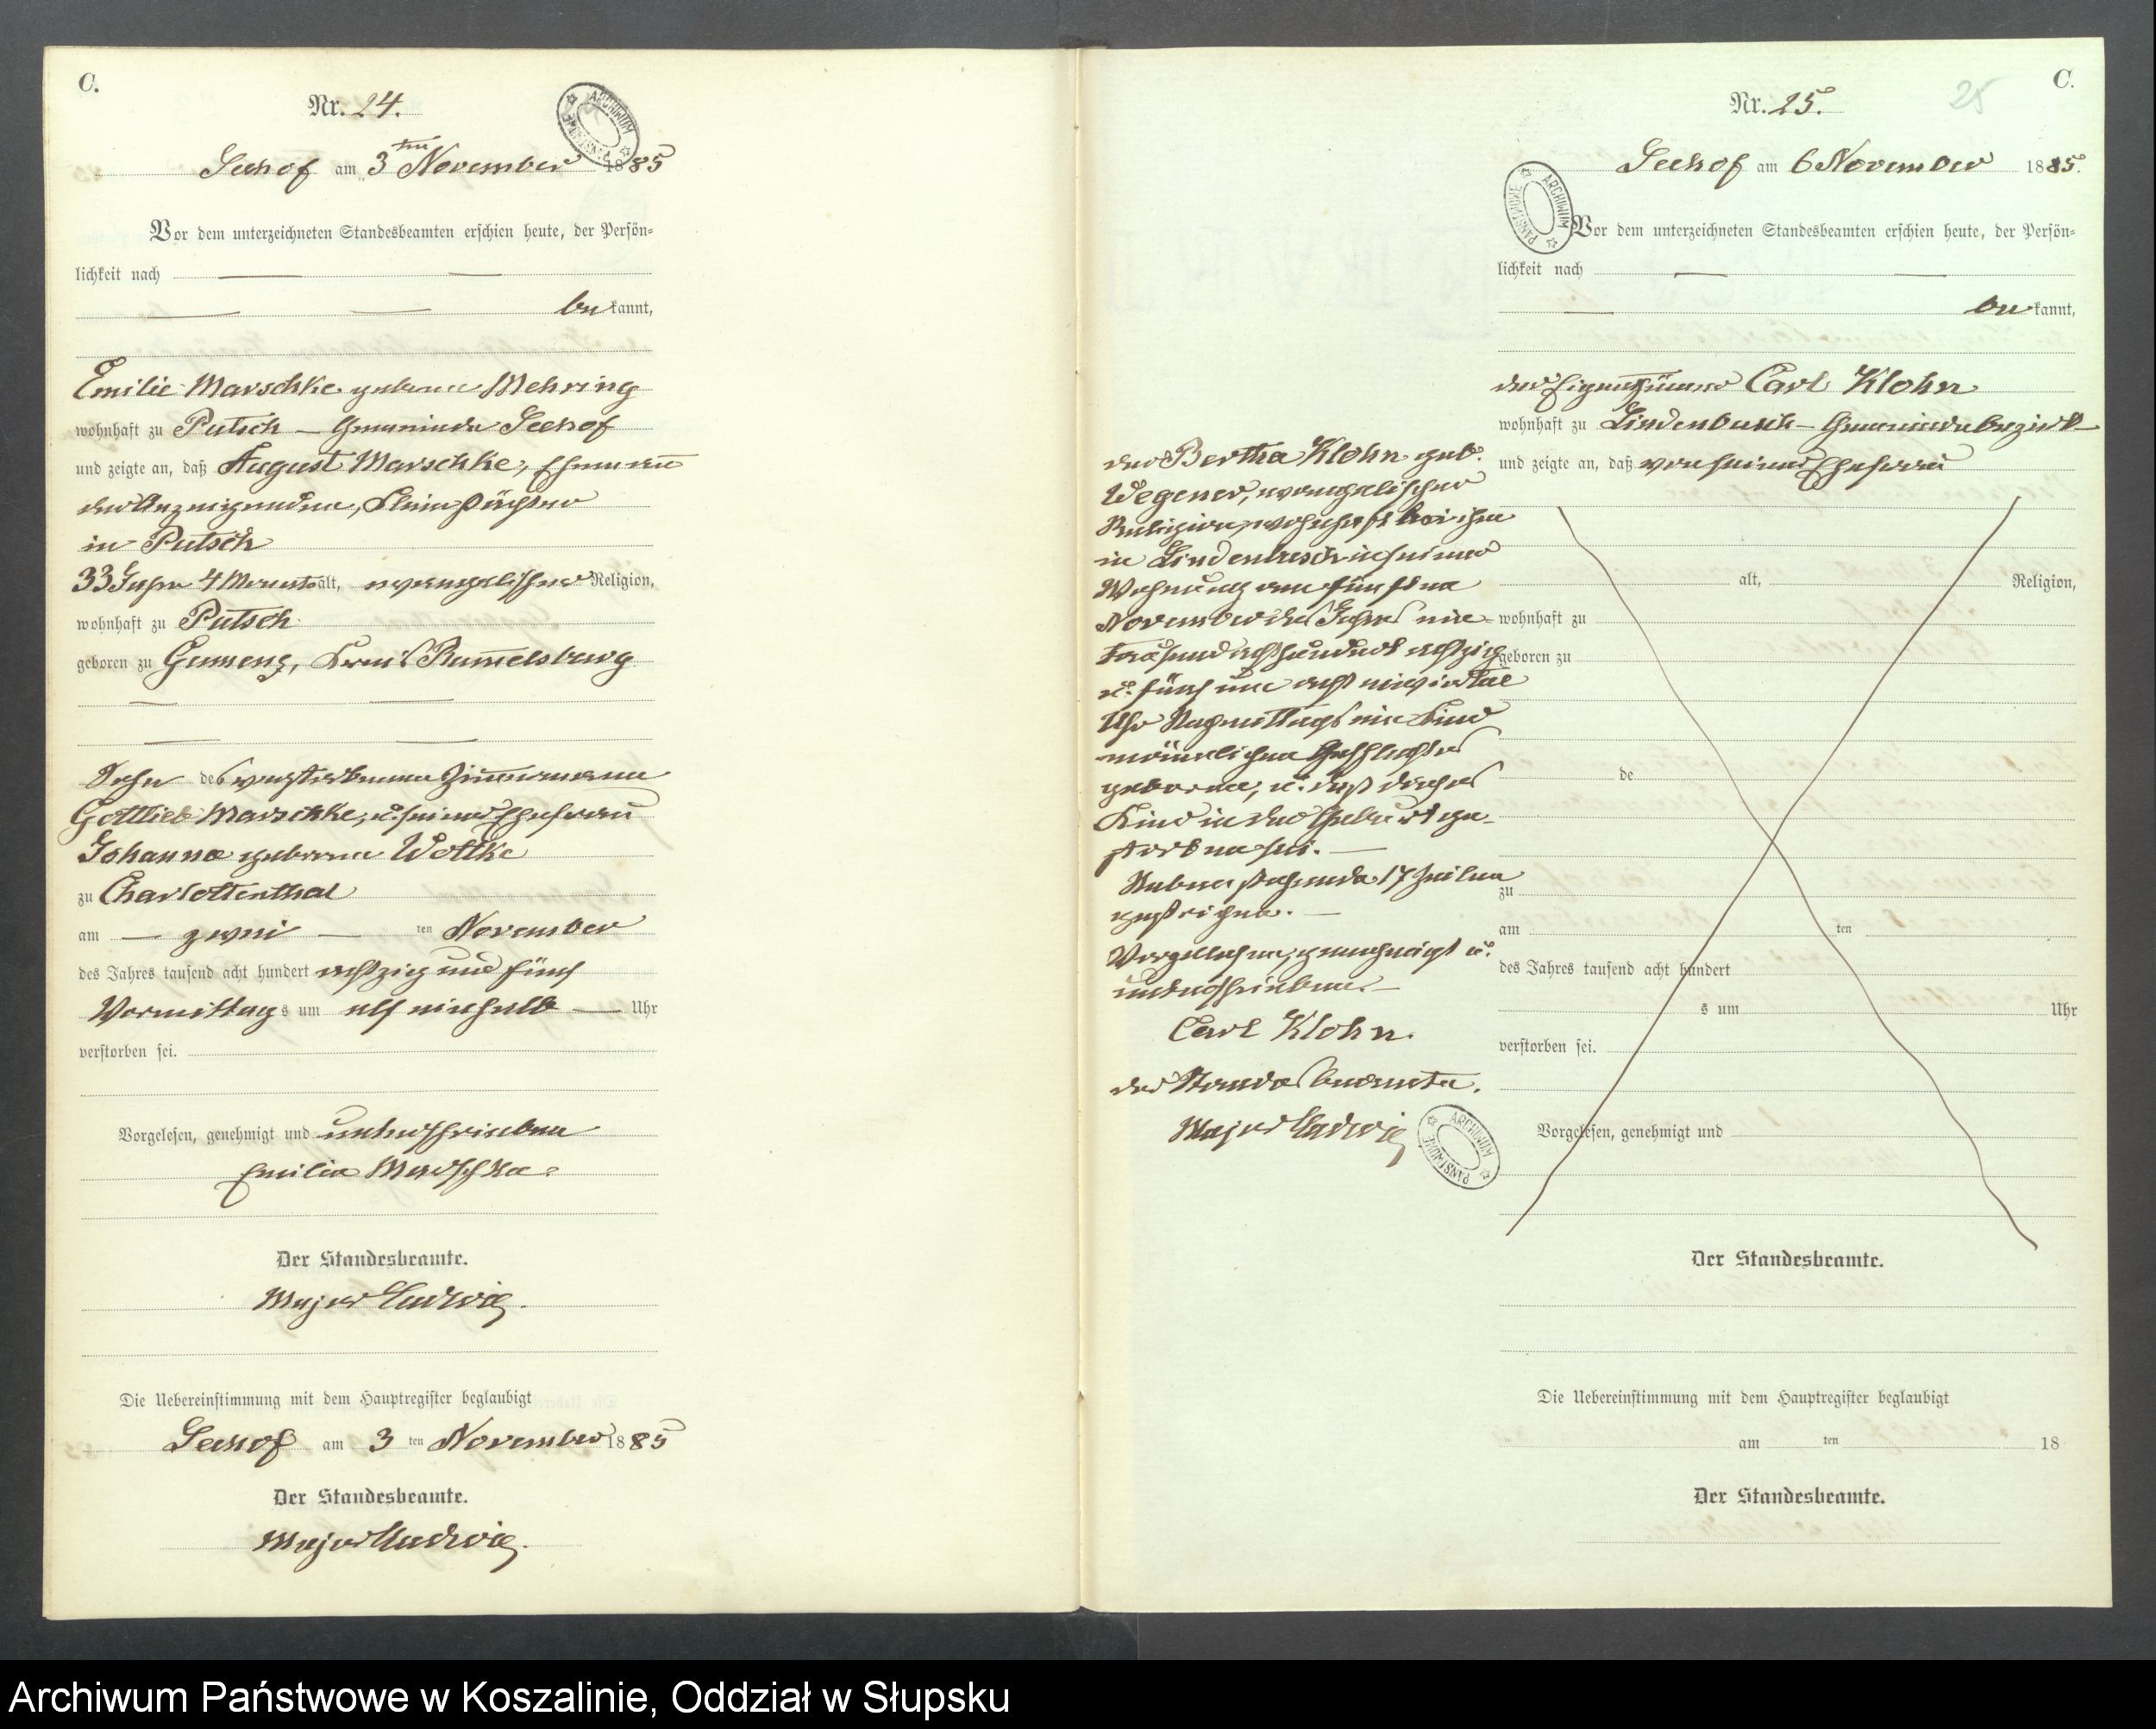 C.
Nr. 24.
ARCHIWUM PAŃSTWOWE
Seehof am 3ten November 1885
Vor dem unterzeichneten Standesbeamten erschien heute, der Persön=
lichkeit nach
bekannt,
Emilie Marschke geborene Mehring
wohnhaft zu Putsch – Gemeinde Seehof
und zeigte an, daß August Marschke, Ehemann
der Anzeigenden, Kleinpächter
in Putsch
33 Jahr 4 Monate alt, evangelischer Religion,
wohnhaft zu Putsch
geboren zu Gumenz, Kreis Rummelsburg
Sohn des verstorbenen Zimmermann
Gottlieb Marschke, u. seiner Ehefrau
Johanna geborene Woltke
zu Charlottenthal
am — zwei — ten November
des Jahres tausend acht hundert achtzig und fünf
Vormittags um elf einhalb — Uhr
verstorben sei.
Vorgelesen, genehmigt und unterschrieben
Emilie Marschke.
Der Standesbeamte.
Major Ludwig.
Die Uebereinstimmung mit dem Hauptregister beglaubigt
Seehof am 3 ten November 1885
Der Standesbeamte.
Major Ludwig.
C.
25
Nr. 25.
Seehof am 6 November 1885.
ARCHIWUM PAŃSTWOWE
Vor dem unterzeichneten Standesbeamten erschien heute, der Persön=
lichkeit nach
bekannt,
der Eigenthümer Carl Klohn
wohnhaft zu Lindenbusch – Gemeindebezirk
und zeigte an, daß von seiner Ehefrau
der Bertha Klohn geb.
Wegener, evangelischer
Religion, wohnhaft bei ihm
in Lindenbusch in seiner
Wohnung am fünften
November des Jahres ein=
tausend achthundert achtzig
u. fünf um acht einviertel
Uhr Nachmittags ein Kind
männlichen Geschlechtes
geboren, u. daß dieses
Kind in der Geburt ge=
storben sei. —
Nebenstehende 17 Zeilen
gestrichen. —
Vorgelesen, genehmigt u.
unterschrieben. —
Carl Klohn.
der Standesbeamte.
Major Ludwig
ARCHIWUM PAŃSTWOWE
alt, Religion,
wohnhaft zu
geboren zu
de
zu
am ten
des Jahres tausend acht hundert
s um Uhr
verstorben sei.
Vorgelesen, genehmigt und
Der Standesbeamte.
Die Uebereinstimmung mit dem Hauptregister beglaubigt
am ten 18
Der Standesbeamte.
Archiwum Państwowe w Koszalinie, Oddział w Słupsku